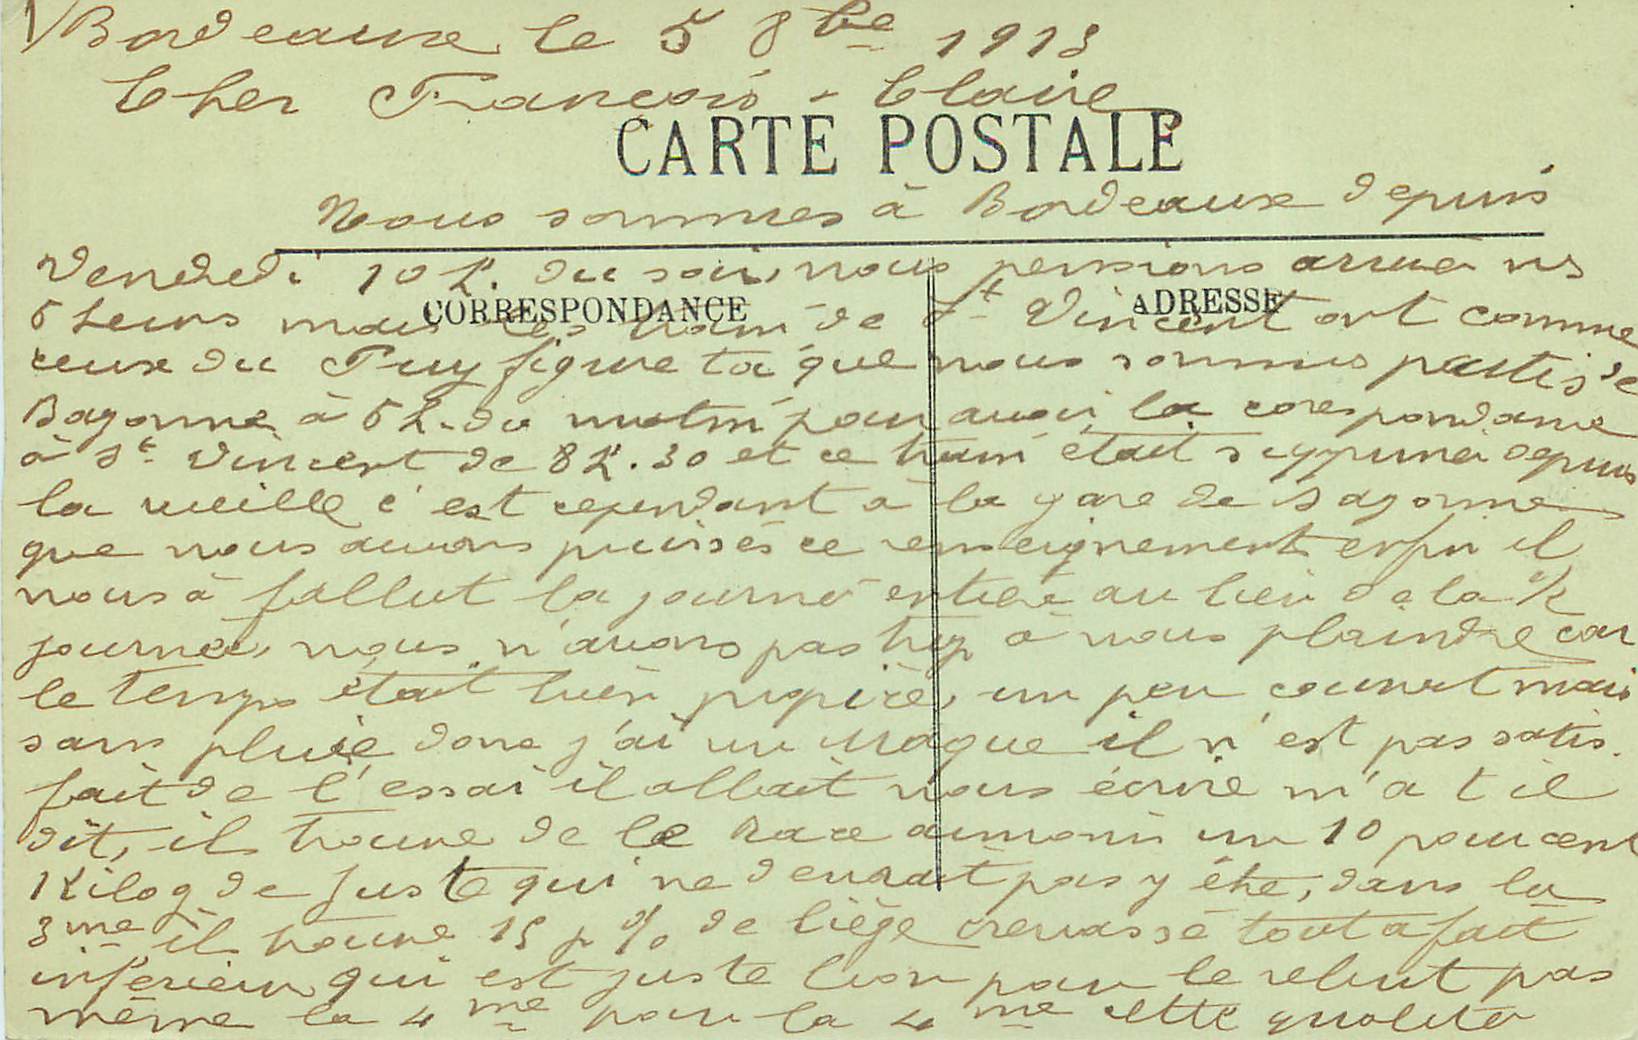 1/ Bordeaux le 5 8bre 1913
Cher François - Claire
CARTE POSTALE
Nous sommes à Bordeaux depuis
Vendredi 10 h. du soir, nous pensions arriver vers
CORRESPONDANCE ADRESSE
5 heurs mais les train de St Vincent ont comme
ceux du Puy figure ta que nous sommes partis de
Bayonne à 5 h. du matin pour avoir la corespondance
à St Vincent de 8 h. 30 et ce train était supprimé depuis
la vieille c'est cependant à la gare de Bayonne
que nous avons puisés ce renseignement enfin il
nous à fallut la journé entière au lieu de la ½
journée, nous n'avons pas trop à nous plaindre car
le temps était bien propice, un peu couvert mais
sans pluie, donc j'ai vu Maque il n'est pas satis
fait de l'essai il allait nous écrire m'a t il
dit, il trouve de la Race aumoin un 10 pour cent
Kilog de juste qui ne devrait pas y être, dans la
3me il trouve 15 p % de liège crevassé tout a fait
inferieur qui est juste bon pour le rebut pas
même la 4me pour la 4me cette qualité